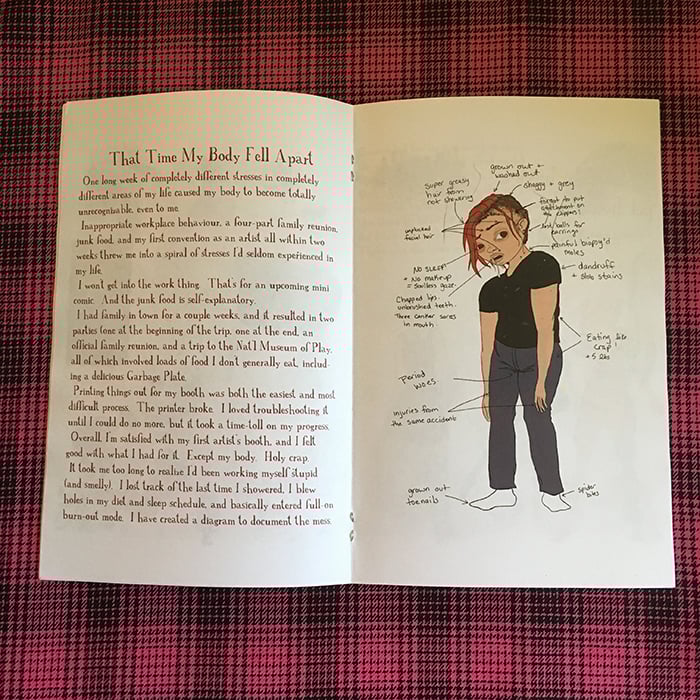 That Time My Body Fell Apart
One long week of completely different stresses in completely
different areas of my life caused my body to become totally
unrecognisable, even to me.
Inappropriate workplace behaviour, a four-part family reunion,
junk food, and my first convention as an artist all within two
weeks threw me into a spiral of stresses I'd seldom experienced in
my life.
I won't get into the work thing. That's for an upcoming mini
comic. And the junk food is self-explanatory.
I had family in town for a couple weeks, and it resulted in two
parties (one at the beginning of the trip, one at the end, an
official family reunion, and a trip to the Nat'l Museum of Play,
all of which involved loads of food I don't generally eat, includ-
ing a delicious Garbage Plate.
Printing things out for my booth was both the easiest and most
difficult process. The printer broke. I loved troubleshooting it
until I could do no more, but it took a time-toll on my progress.
Overall, I'm satisfied with my first artist's booth, and I felt
good with what I had for it. Except my body. Holy crap.
It took me too long to realise I'd been working myself stupid
(and smelly). I lost track of the last time I showered, I blew
holes in my diet and sleep schedule, and basically entered full-on
burn-out mode. I have created a diagram to document the mess.
grown out +
washed out
super greasy
hair from
not showering
shaggy + grey
forgot to put
attachment on
the clippers!
unplucked
facial hair
balls for
earrings
painful biopsy'd
moles
NO SLEEP!
+ No makeup
= soulless gaze.
dandruff
+ stains
Chapped lips.
unbrushed teeth.
Three canker sores
in mouth.
Eating like
crap!
+5 lbs
Period
woes
injuries from
the same accident
grown out
toenails
spider
bites